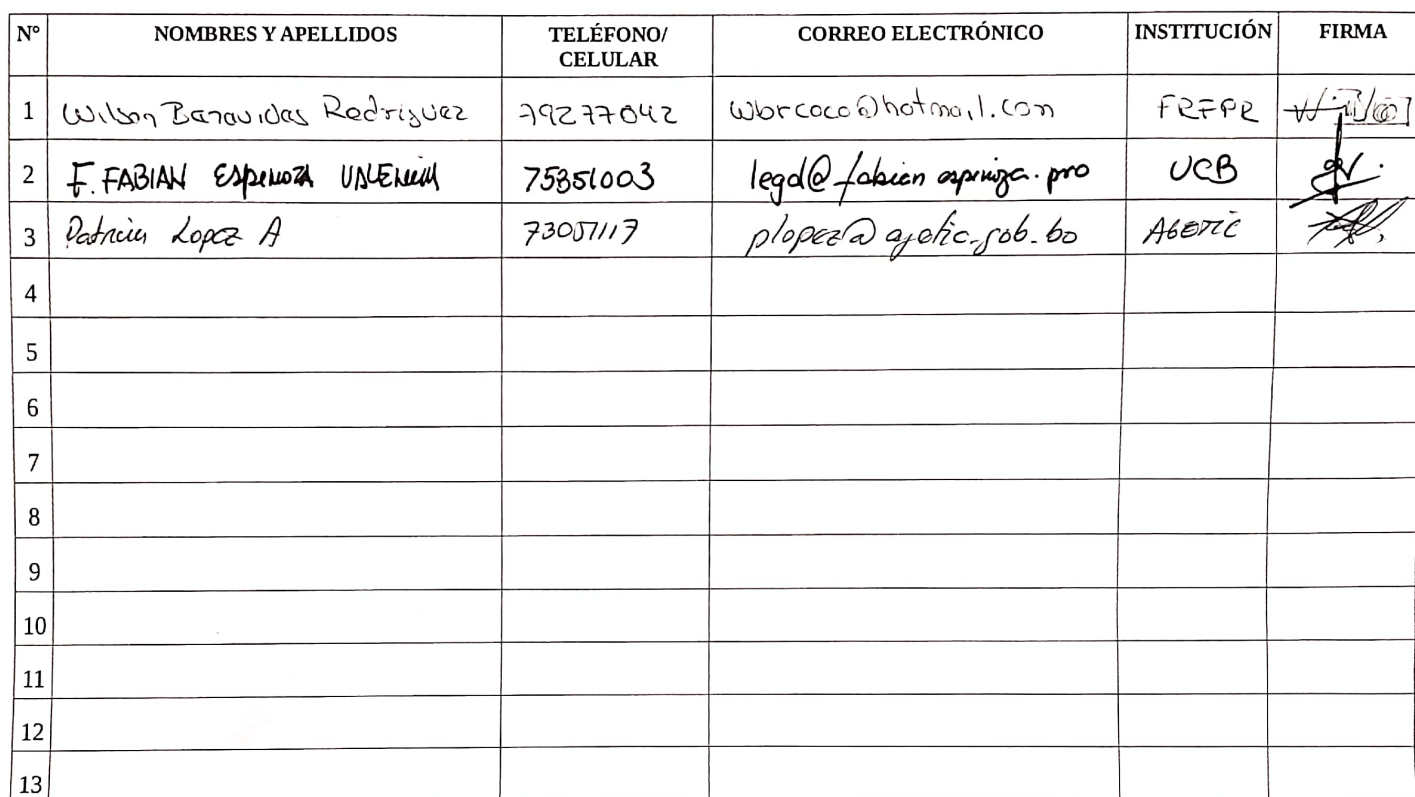 Nº NOMBRES Y APELLIDOS TELÉFONO/ CELULAR CORREO ELECTRÓNICO INSTITUCIÓN FIRMA
1 Wilson Benavidas Rodriguez 79277042 wbrcoco@hotmail.com FRFPR
2 F. FABIAN Espinoza VALENCIA 75851003 legal@fabianespinoza.pro UCB
3 Patricia Lopez A 73057117 plopez@agetic.gob.bo AGETIC
4
5
6
7
8
9
10
11
12
13